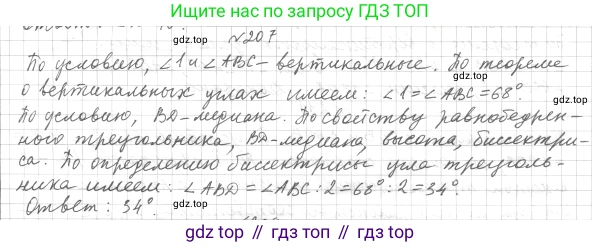 Ищите нас по запросу
ГДЗ ТОП
gdz.top
№207
gdz.top
По условию, ∠1 и ∠ABC - вертикальные. По теореме
о вертикальных углах имеем: ∠1=∠ABC=68°.
gdz.top
По условию, BD-медиана. По свойству равнобедрен-
ного треугольника, BD-медиана, высота, биссектри-
са. По определению биссектрисы угла треуголь-
ника имеем: ∠ABD=∠ABC:2=68°:2=34°.
Ответ: 34°.
gdz.top
gdz.top
gdz.top // gdz.top // gdz.top